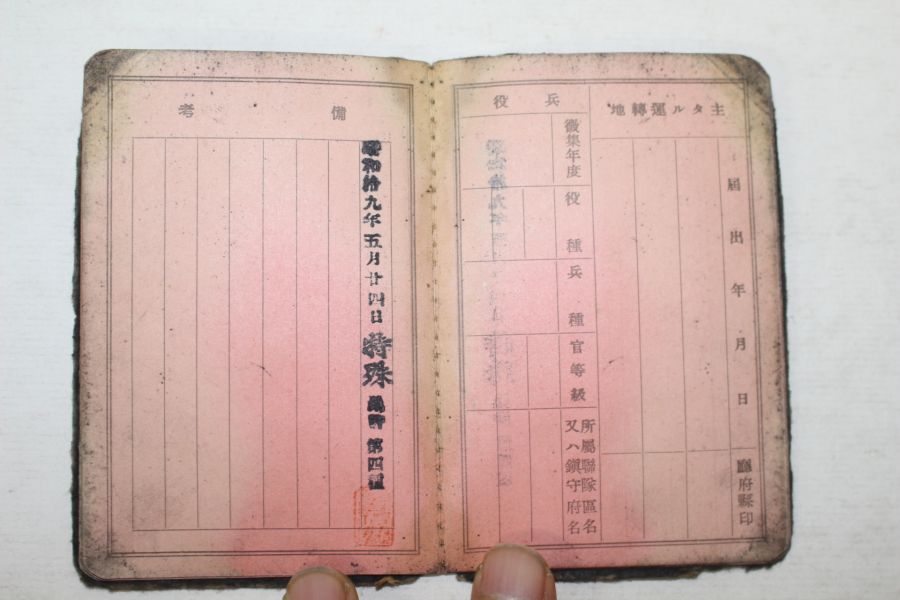 主タル運轉地
届出年月日
廳府縣印
兵役
徵集年度
役種
兵種
官等級
所屬聯隊區名
又ハ鎭守府名
備考
昭和拾九年五月廿四日特殊 第四種